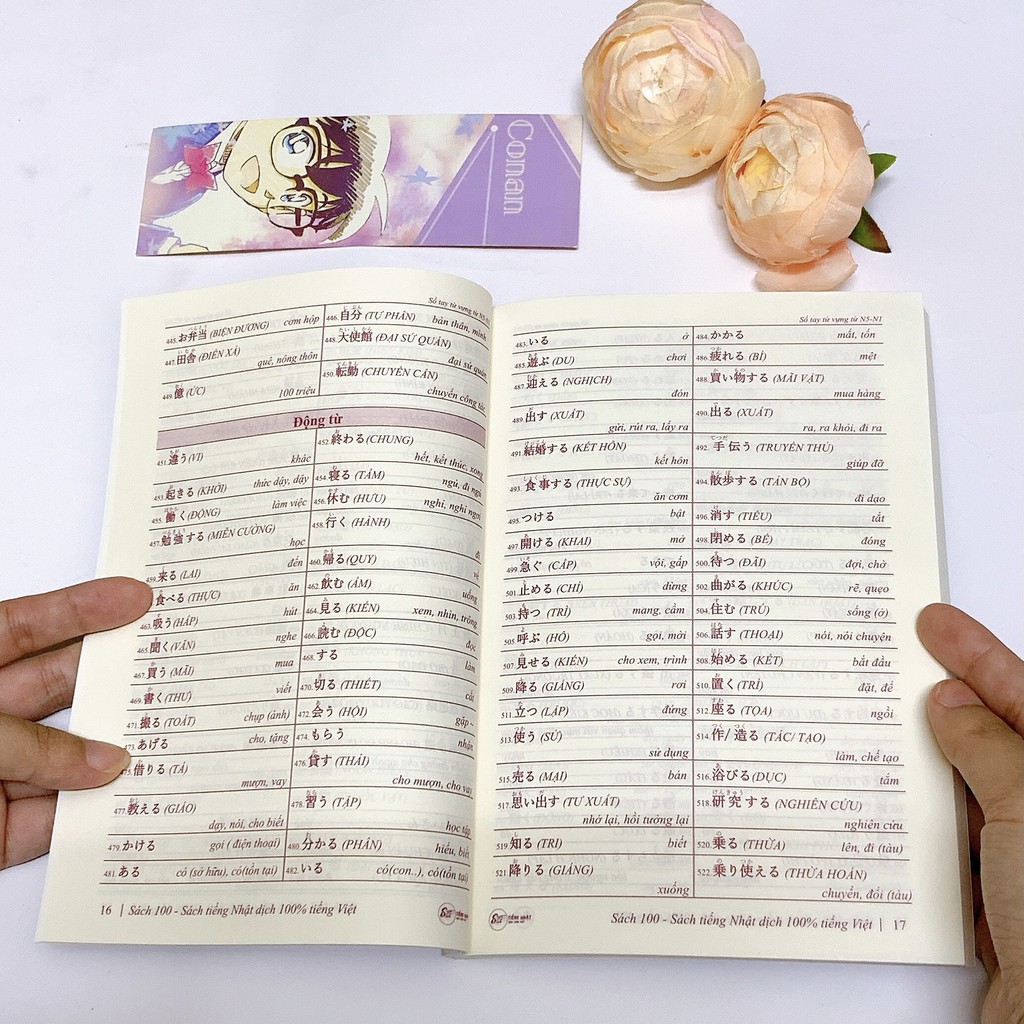 Conan
Sổ tay từ vựng từ N5-N1
445. お弁当 (BIỆN ĐƯƠNG) cơm hộp
446. 自分 (TỰ PHÂN) bản thân, mình
447. 田舎 (ĐIỀN XÁ) quê, nông thôn
448. 大使館 (ĐẠI SỨ QUÁN) đại sứ quán
449. 億 (ỨC) 100 triệu
450. 転勤 (CHUYỂN CẦN) chuyển công tác
Động từ
451. 違う (VI) khác
452. 終わる (CHUNG) hết, kết thúc, xong
453. 起きる (KHỞI) thức dậy, dậy
454. 寝る (TẨM) ngủ, đi ngủ
455. 働く (ĐỘNG) làm việc
456. 休む (HƯU) nghỉ, nghỉ ngơi
457. 勉強する (MIỄN CƯỜNG) học
458. 行く (HÀNH) đi
459. 来る (LAI) đến
460. 帰る (QUY) về
食べる (THỰC) ăn
462. 飲む (ẨM) uống
463. 吸う (HẤP) hút
464. 見る (KIẾN) xem, nhìn, trông
465. 聞く (VĂN) nghe
466. 読む (ĐỘC) đọc
467. 買う (MÃI) mua
468. する làm
469. 書く (THƯ) viết
470. 切る (THIẾT) cắt
471. 撮る (TOÁT) chụp (ảnh)
472. 会う (HỘI) gặp
473. あげる cho, tặng
474. もらう nhận
475. 借りる (TÁ) mượn, vay
476. 貸す (THẢI) cho mượn, cho vay
477. 教える (GIÁO) dạy, nói, cho biết
478. 習う (TẬP) học tập
479. かける gọi ( điện thoại)
480. 分かる (PHÂN) hiểu, biết
481. ある có (sở hữu), có(tồn tại)
482. いる có(con..), có(tồn tại)
16 | Sách 100 - Sách tiếng Nhật dịch 100% tiếng Việt
Sổ tay từ vựng từ N5-N1
483. いる ở
484. かかる mất, tốn
485. 遊ぶ (DU) chơi
486. 疲れる (BÌ) mệt
487. 迎える (NGHỊCH) đón
488. 買い物する (MÃI VẬT) mua hàng
489. 出す (XUẤT) gửi, rút ra, lấy ra
490. 出る (XUẤT) ra, ra khỏi, đi ra
491. 結婚する (KẾT HÔN) kết hôn
492. 手伝う (TRUYỀN THỦ) giúp đỡ
493. 食事する (THỰC SỰ) ăn cơm
494. 散歩する (TẢN BỘ) đi dạo
495. つける bật
496. 消す (TIÊU) tắt
497. 開ける (KHAI) mở
498. 閉める (BẾ) đóng
499. 急ぐ (CẤP) vội, gấp
500. 待つ (ĐÃI) đợi, chờ
501. 止める (CHỈ) dừng
502. 曲がる (KHÚC) rẽ, quẹo
503. 持つ (TRÌ) mang, cầm
504. 住む (TRÚ) sống (ở)
505. 呼ぶ (HÔ) gọi, mời
506. 話す (THOẠI) nói, nói chuyện
507. 見せる (KIẾN) cho xem, trình
508. 始める (KẾT) bắt đầu
509. 降る (GIÁNG) rơi
510. 置く (TRÍ) đặt, để
511. 立つ (LẬP) đứng
512. 座る (TỌA) ngồi
513. 使う (SỬ) sử dụng
514. 作/ 造る (TÁC/ TẠO) làm, chế tạo
515. 売る (MẠI) bán
516. 浴びる (DỤC) tắm
517. 思い出す (TƯ XUẤT) nhớ lại, hồi tưởng lại
518. 研究する (NGHIÊN CỨU) nghiên cứu
519. 知る (TRI) biết
520. 乗る (THỪA) lên, đi (tàu)
521. 降りる (GIÁNG) xuống
522. 乗り使える (THỪA HOÁN) chuyển, đổi (tàu)
Sách 100 - Sách tiếng Nhật dịch 100% tiếng Việt | 17